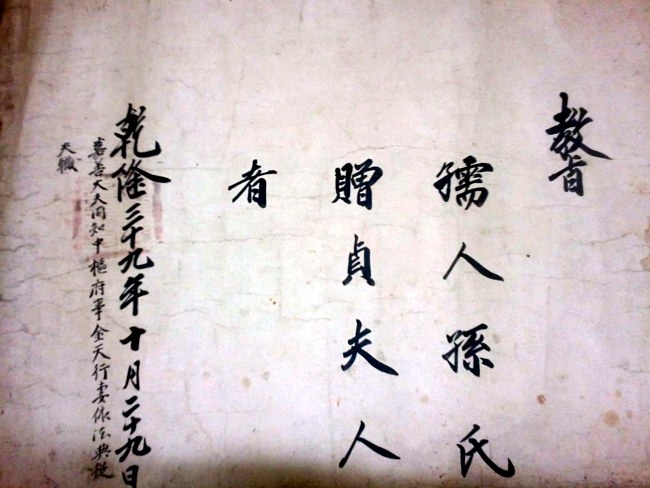 教旨
孺人孫氏
贈貞夫人
者
乾隆三十九年十月二十九日
嘉善大夫同知中樞府事金天行妻依法典從
夫職